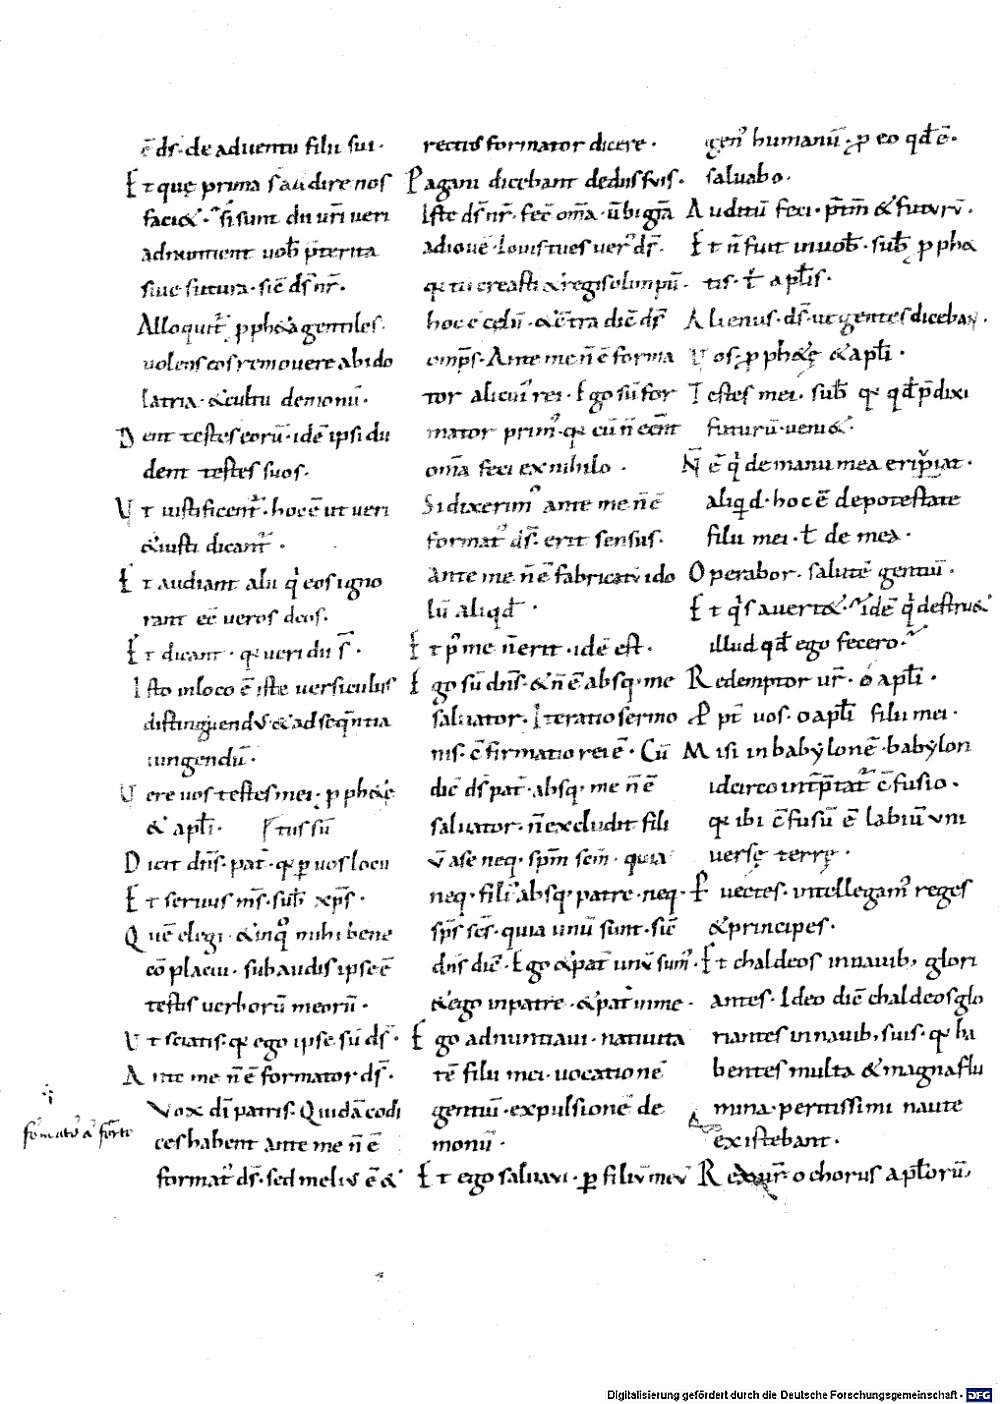 ē ds̄· de aduentu filii sui·
Et quę prima s̄ audire nos
faci&· si sunt dii ur̄i ueri
adnuntient uob̄ p̄terita
siue futura· sic̄ ds̄ nr̄·
Alloquit̄ pph&a gentiles·
uolens eos remouere ab ido
latria· & cultu demonū·
Dent testes eorū· idē ipsi dii
dent testes suos·
Vt iustificent̄· hoc ē ut ueri
& iusti dicant̄·
Et audiant alii qi eos igno
rant eē ueros deos·
Et dicant· q; ueri dii s̄·
Isto in loco ē iste uersiculus
distinguendū & ad seq̄ntia
iungendū·
Vere uos testes mei· pph&ę
& apłi· tus sū
Dicit dn̄s· pat̄· q; p uos locu
Et seruus ms̄· sub̄ xp̄s·
Quē elegi· & in quo mihi bene
cō placui· subaudis ipse ē
testis uerborū meorū·
Vt sciatis· q; ego ipse sū ds̄·
Ante me n̄ ē formator ds̄·
Vox dī patris· Quidā codi
ces habent ante me n̄ ē
format' ds̄· sed melius ē &
rectius formator dicere·
Pagani dicebant de diis suis·
Iste ds̄ nr̄· fec̄ om̄a· ū bi gr̄a
adiouē· louis tues uer' ds̄·
q; tu creasti & regis olimpū·
hoc ē celū· & tr̄a dic̄ ds̄
omp̄s· Ante me n̄ ē forma
tor alicui' rei· Ego sū for
mator prim'· q; cū n̄ eēnt
om̄a feci ex nihilo·
Si dixerim' ante me n̄ ē
format' ds̄· erit sensus·
ante me n̄ ē fabricatū ido
lū aliqd̄·
Et p' me n̄ erit· idē est·
Ego sū dn̄s· & n̄ ē absq; me
saluator· Iteratio sermo
nis· c̄firmatio rei ē· Cū
dic̄ ds̄ pat̄· absq; me n̄ ē
saluator· n̄ excludit fili
ū a se neq; sp̄m sc̄m· quia
neq; fili' absq; patre· neq;
sp̄s sc̄s· quia unū sunt· sic̄
dn̄s dic̄· Ego & pat̄ unū sum'·
& ego in patre· & pat̄ in me·
Ego adnuntiaui· natiuita
tē filii mei· uocationē
gentiū· expulsionē de
monū·
Et ego saluaui· p filiū meū
gen' humanū· p eo qd̄ ē·
saluabo·
Auditū feci· p̄tm̄ & futurū·
Et n̄ fuit in uob̄· sub̄ pph&
tis· t̄ apłis·
Alienus· ds̄· ut gentes diceban̄·
Vos· pph&ę & apłi·
Testes mei· sub̄ q; qd̄ p̄dixi
futurū· ueni&·
N̄ ē qi de manu mea eripiat·
aliqd· hoc ē de potestate
filii mei· t̄ de mea·
Operabor· salutē gentiū·
Et qis auert&· idē qi destru&
illud qd̄ ego fecero·
Redemptor ur̄· ó apłi·
Ppt̄ uos· o apłi filii mei·
Misi in babẏlonē· babẏlon
idcirco int̄p̄tat̄ c̄fusio·
q; ibi c̄fusū ē labiū uni
uersę terrę·
Et uectes· intellegam' reges
& principes·
Et chaldeos in nauib; glori
antes· Ideo dic̄ chaldeos glo
riantes in nauib; suis· q; ha
bentes multa & magna flu
mina· peritissimi naute
existebant·
Rex ur̄· o chorus apłorū
formato' a' formo